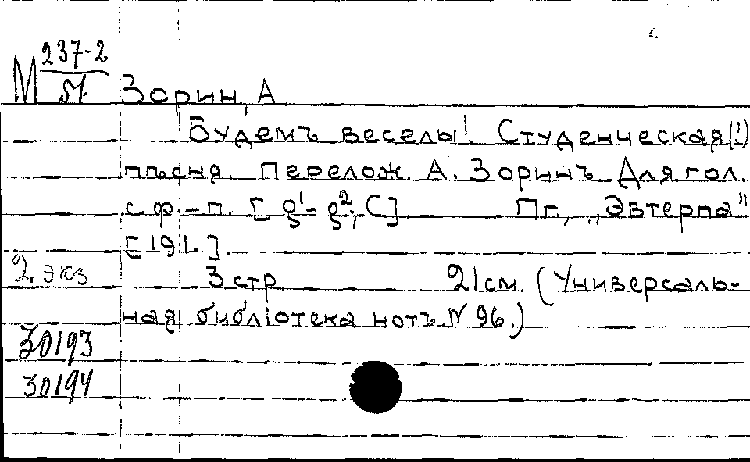 М 237-2
51
Зорин, А
Будемъ веселы! Студенческая(!)
пѣсня. Перелож. А. Зоринъ Для гол.
с ф.-п. [g¹-g², C] Пг, „Эвтерпа"
[191.].
2 экз
3 стр. 21 см. (Универсаль-
ная библіотека нотъ № 96.)
30193
30194